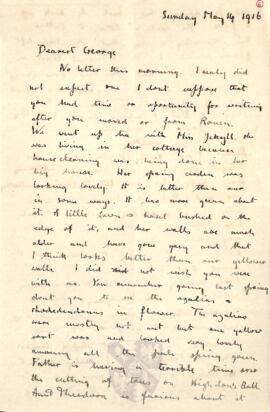 Sunday May 14 1916
Dearest George
No letter this morning. I really did
not expect one I dont suppose that
you had time or oportunity for writing
after you moved or from Rouen.
We went up tea with Miss Jekyll. She
was living in her cottage because
house cleaning was being done in her
big house. Her spring garden was
looking lovely. It is better than our
in some ways. It has more green about
it. A little lawn & hazel bushes on the
edge of it, and her walls are much
older and have gone grey and that
I think looks better than our yellower
walls I did did not wish you were
with us. You remember going last spring
dont you to see the azalias &
rhododendrons in flower. The azalias
were mostly not out but one yellow
sort was and looked very lovely
among all the pale spring green.
Father is having a terrible time over
the cutting of trees on Highdown Ball
Aunt Theodora is furious about it